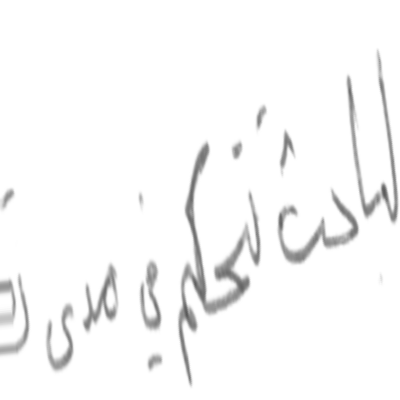 للباحث تتحكم في مدى